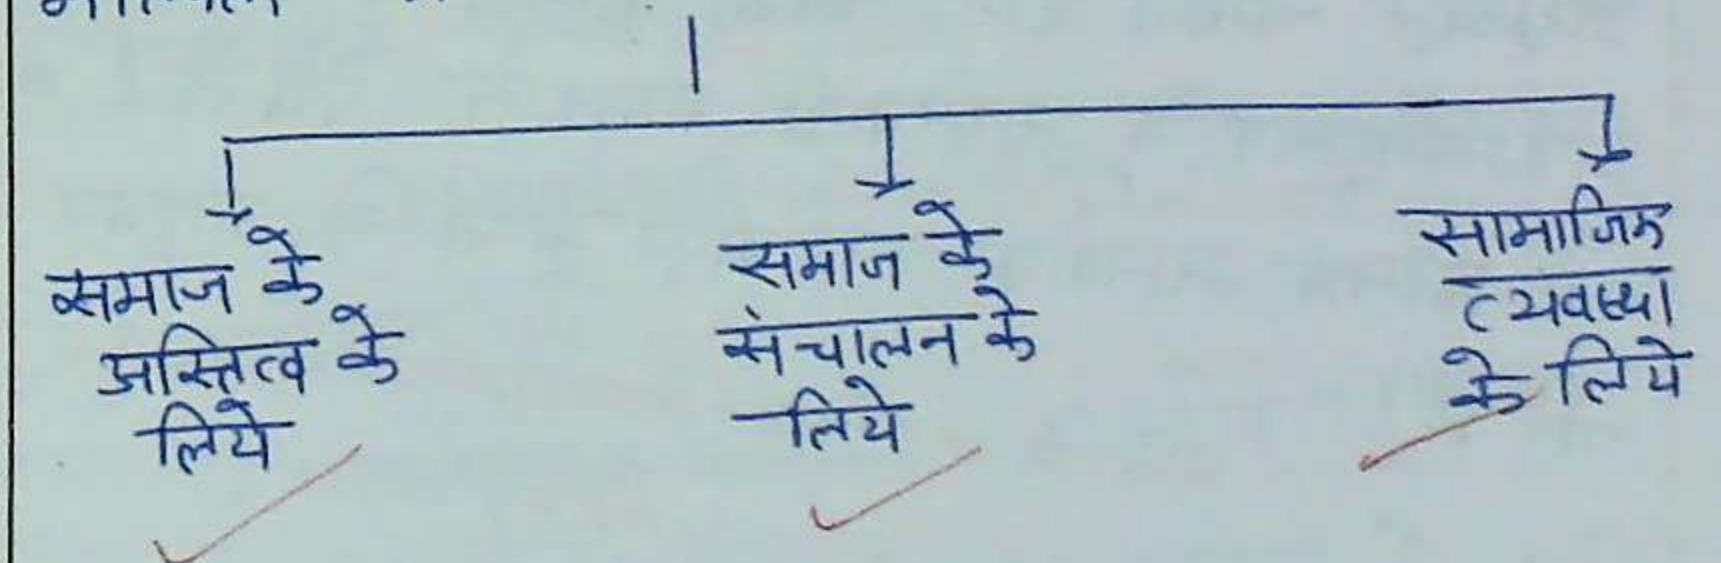 समाज के
अस्तित्व के
लिये
समाज के
संचालन के
लिये
सामाजिक
व्यवस्था
के लिये